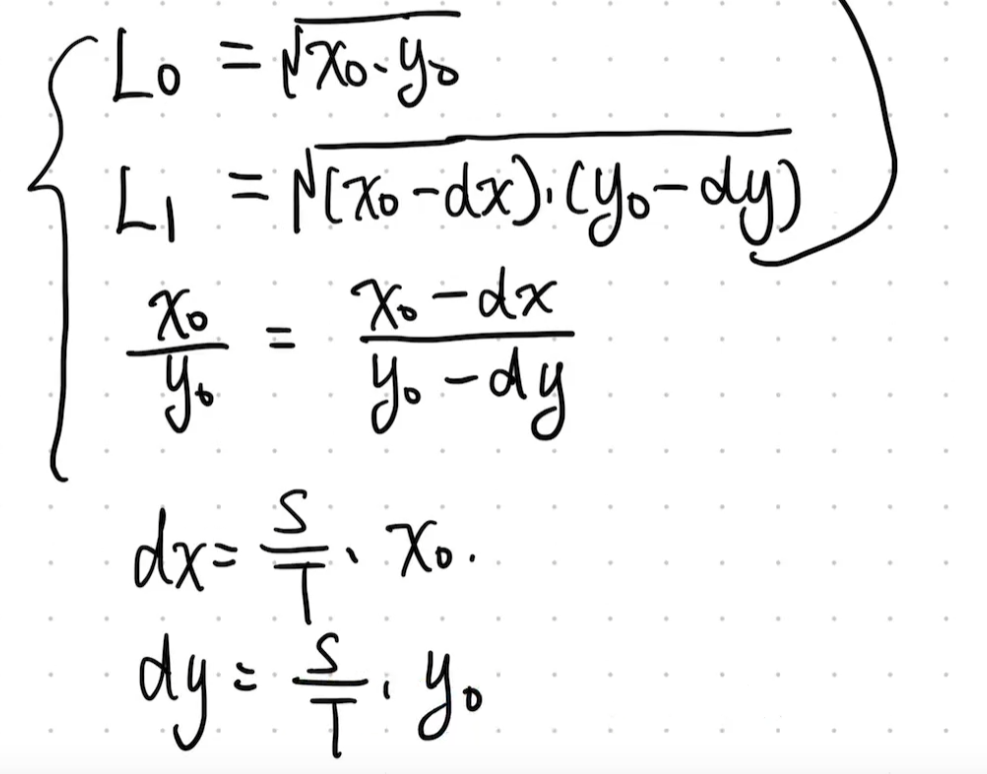 L₀ = √(x₀·y₀)
L₁ = √((x₀-dx)·(y₀-dy))
x₀/y₀ = (x₀-dx)/(y₀-dy)
dx = S/T · x₀.
dy = S/T · y₀